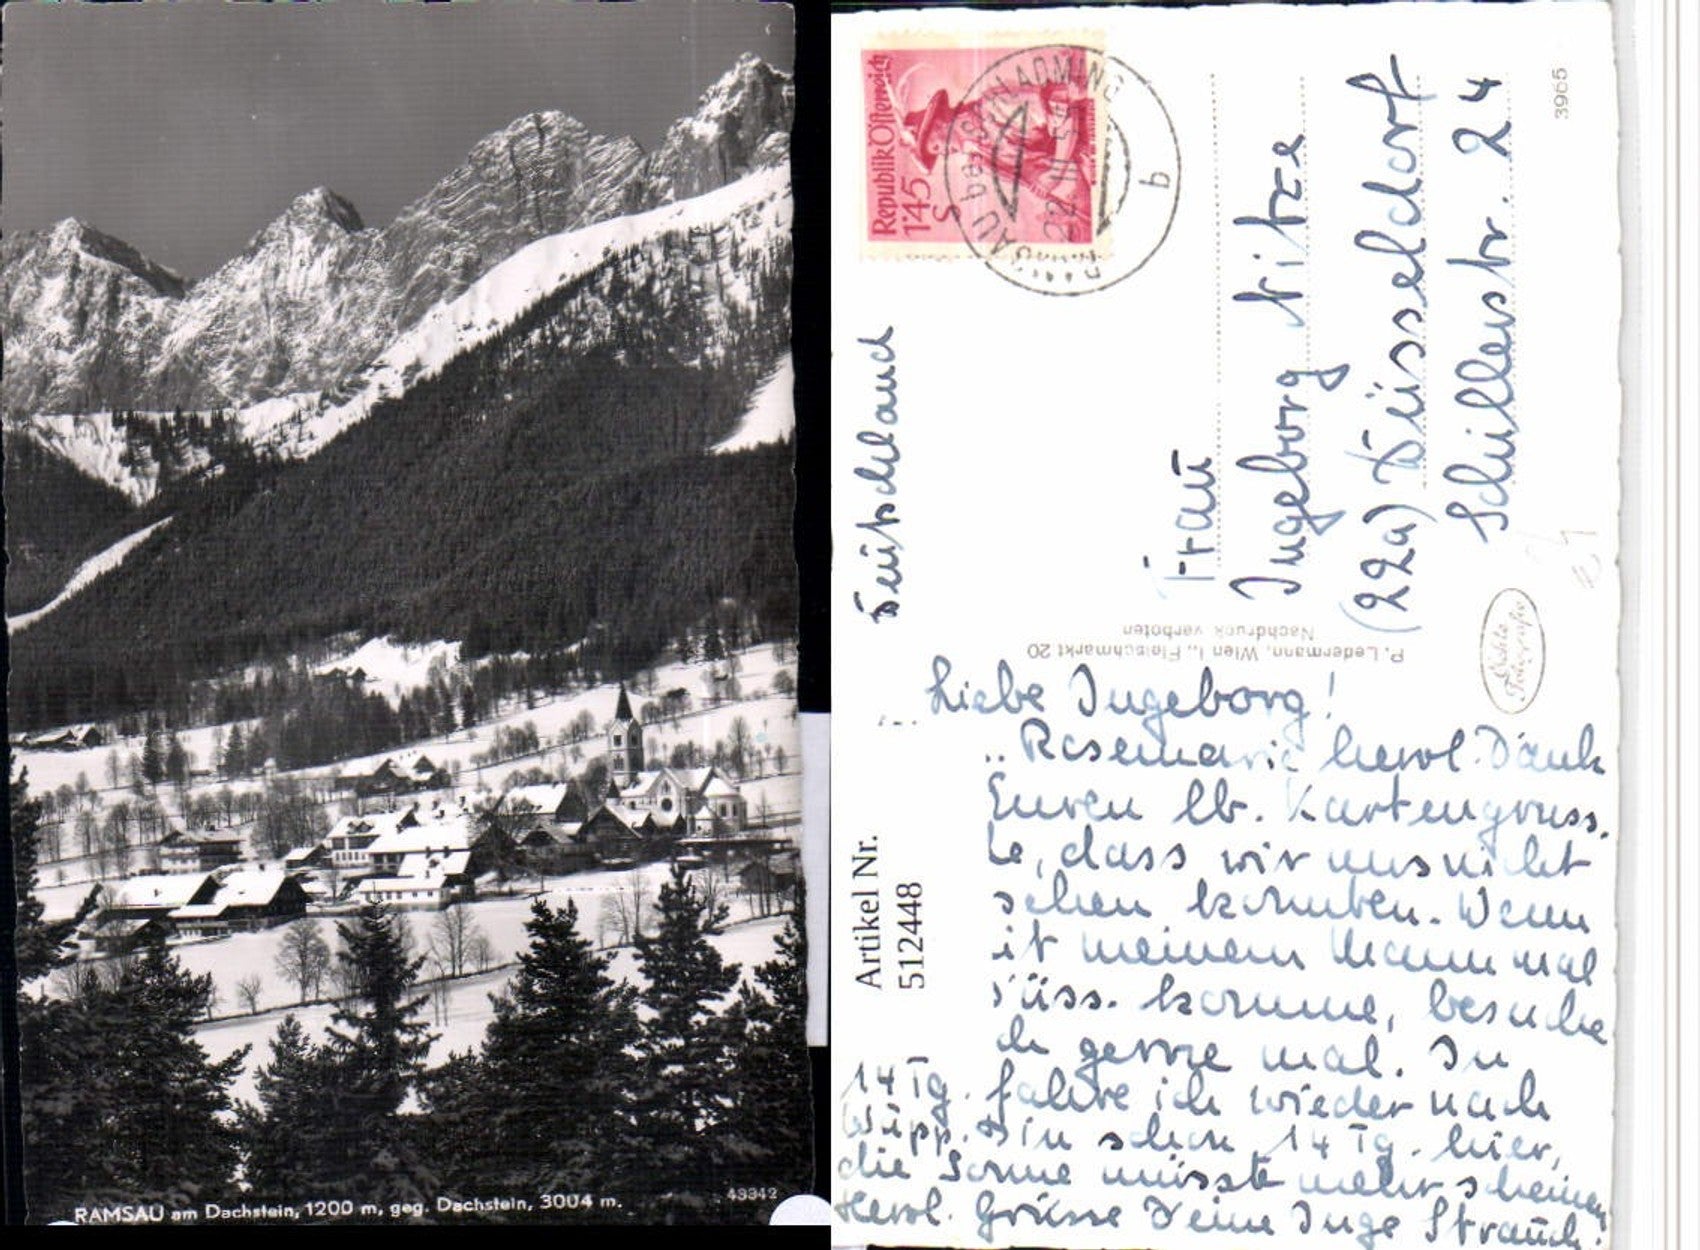 RAMSAU am Dachstein, 1200 m, geg. Dachstein, 3004 m.
49342
Republik Österreich
1'45
S
RAMSAU bei SCHLADMING
22. III. 54
b
3965
Deutschland
Frau
Ingeborg
(22a) Düsseldorf
Schillerstr. 24
P. Ledermann, Wien I., Fleischmarkt 20
Nachdruck verboten
Echte
Fotografie
Artikel Nr.
512448
Liebe Ingeborg!
Rosemarie herzl. Dank
Euren lb. Kartengruss.
, dass wir uns nicht
sehen konnten. Wenn
it meinem Mann mal
Düss. komme, besuche
ch gerne mal. In
14 Tg. fahre ich wieder nach
Wipp. Bin schon 14 Tg. hier,
die Sonne müsste mehr scheinen
Herzl. Grüsse Deine Inge Strauch.